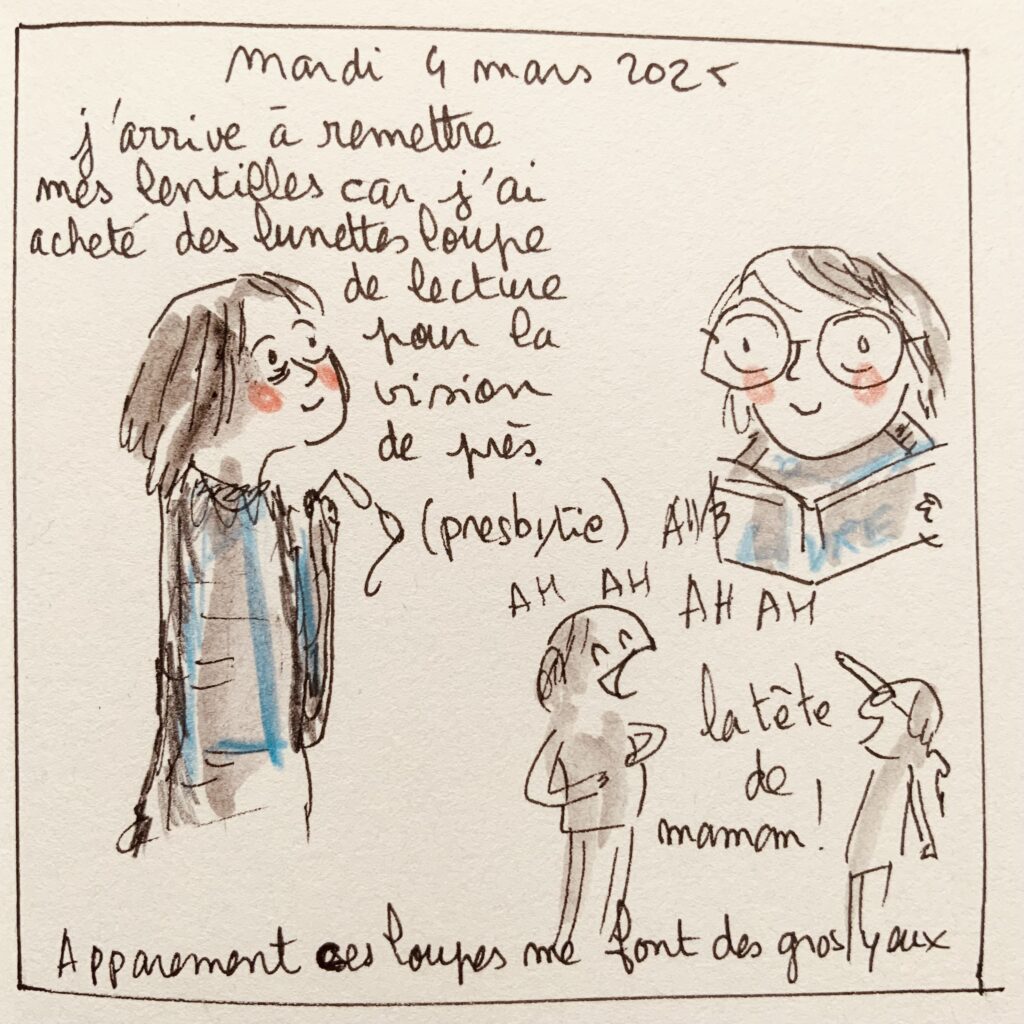 mardi 4 mars 2025
j'arrive à remettre
mes lentilles car j'ai
acheté des lunettes loupe
de lecture
pour la
vision
de près.
(presbytie)
AH AH
AH AH
la tête
de
maman!
Apparement ces loupes me font des gros yeux